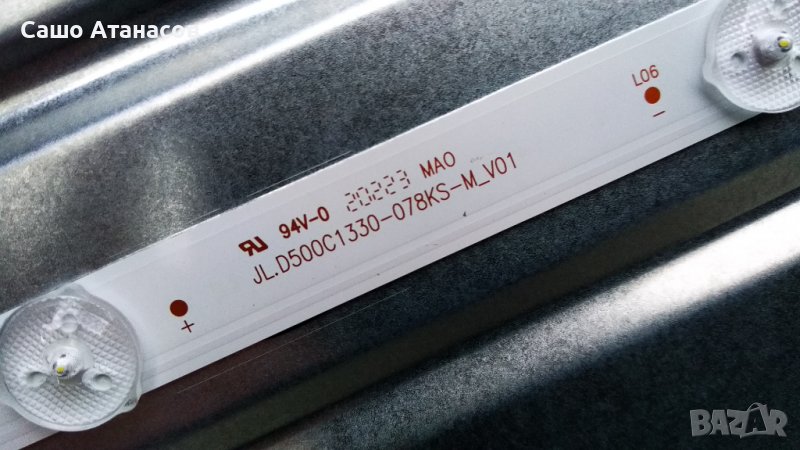 Сашо Атанасов
L06
94V-0 20223 MAO
JL.D500C1330-078KS-M_V01
+
−
BAZAR